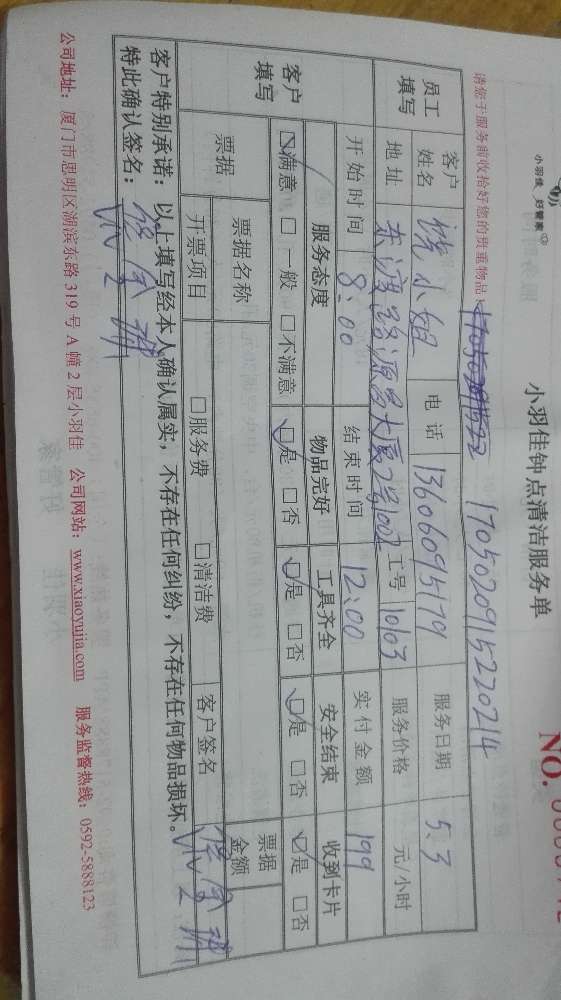 小羽佳 好管家
小羽佳钟点清洁服务单
NO.
1705020915220214
请您于服务前收拾好您的贵重物品!
员工填写 客户姓名 饶小姐 电话 13606095179 服务日期 5.3
地址 东渡路源昌大厦2号1002 工号 10103 服务价格 元/小时
开始时间 8:00 结束时间 12:00 实付金额 199
客户填写 服务态度 物品完好 工具齐全 安全结束 收到卡片
☑满意 □一般 □不满意 ☑是 □否 ☑是 □否 ☑是 □否 ☑是 □否
票据 票据名称 票据金额
开票项目 □服务费 □清洁费 客户签名
客户特别承诺:以上填写经本人确认属实,不存在任何纠纷,不存在任何物品损坏。
特此确认签名:
公司地址:厦门市思明区湖滨东路 319 号 A 幢 2 层小羽佳 公司网站:www.xiaoyujia.com 服务监督热线:0592-5888123